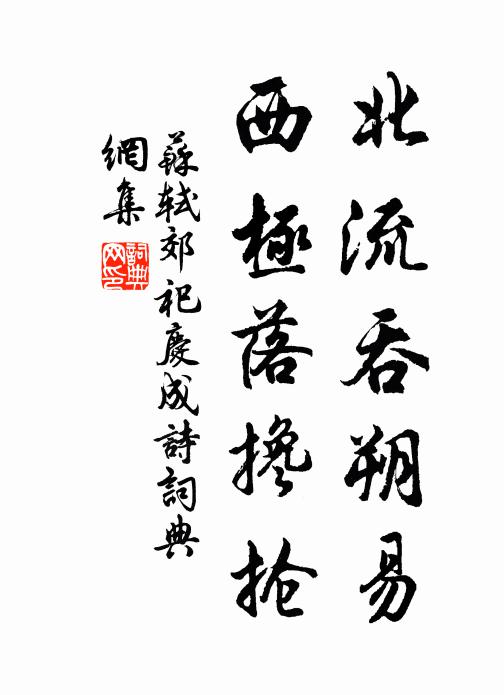 北流吞朔易
西極落攙抢
蘇軾郊祀慶成詩詞典
網集
詞典
网印